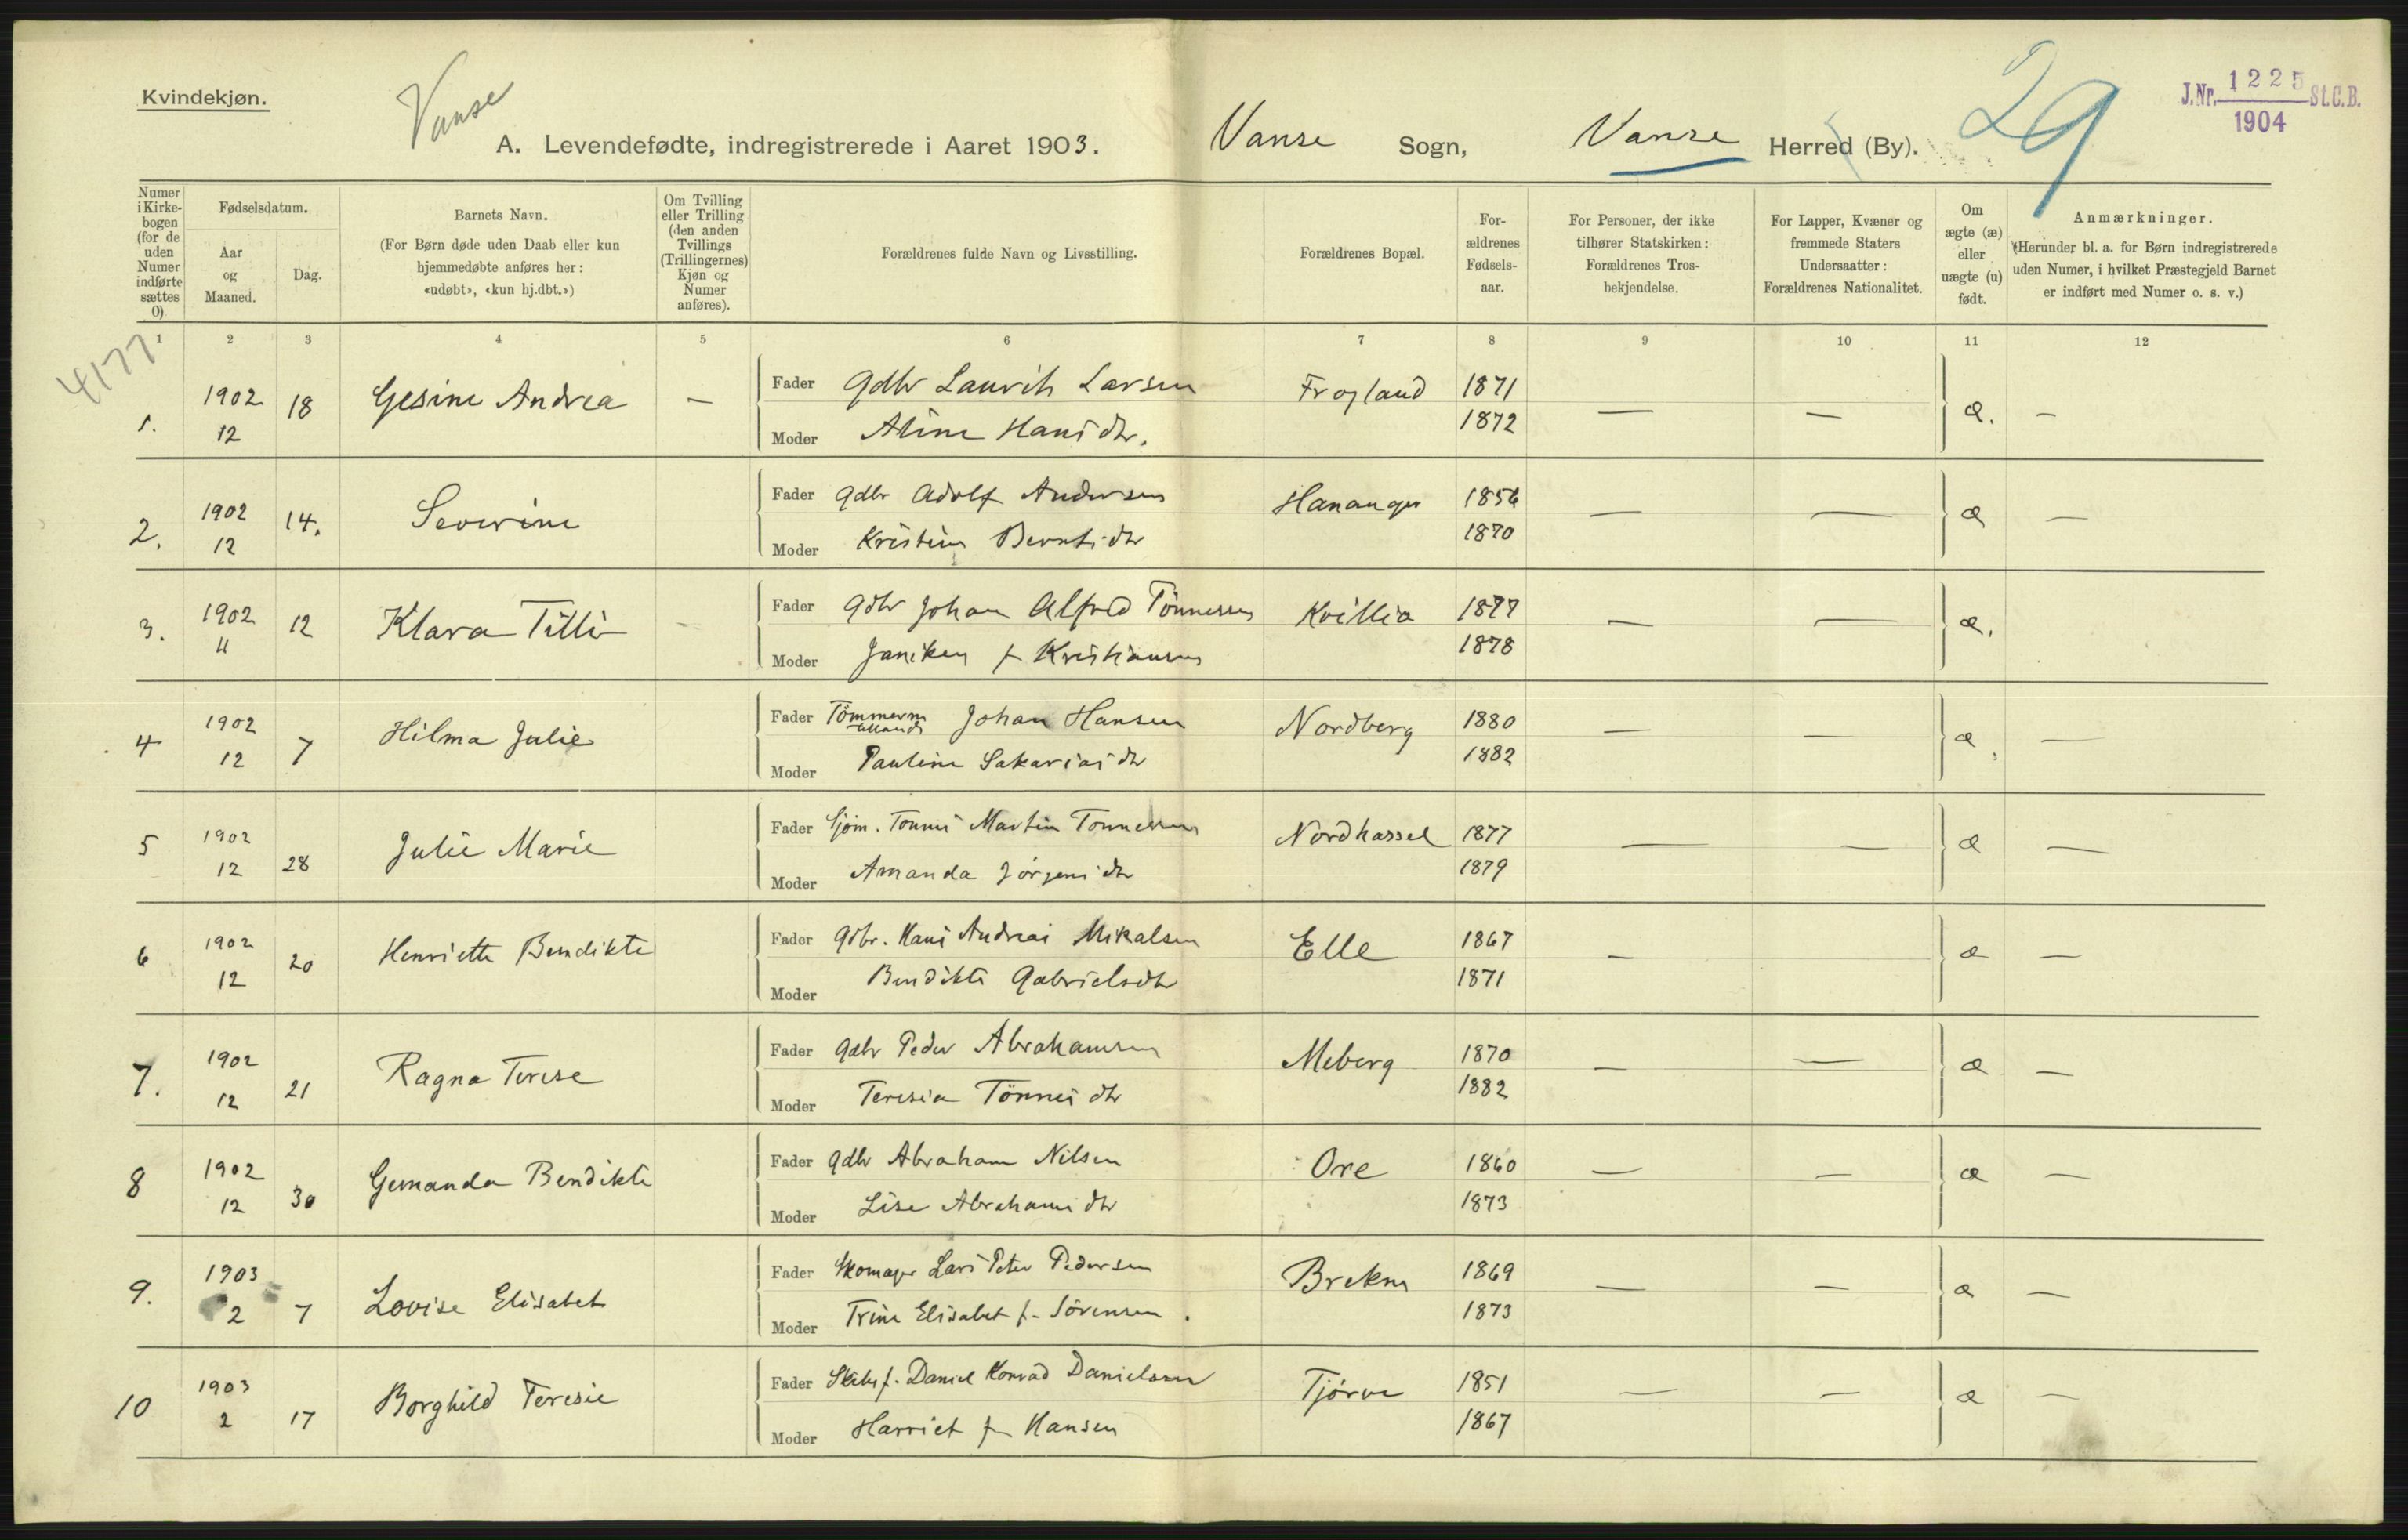 Kvindekjøn.
Vanse
A. Levendefødte, indregistrerede i Aaret 1903. Vanse Sogn, Vanse Herred (By).
29
J.Nr. 1225 St.C.B.
1904
Numer i Kirkebogen (for de uden Numer indførte sættes 0)
Fødselsdatum.
Aar og Maaned.
Dag.
Barnets Navn.
(For Børn døde uden Daab eller kun hjemmedøbte anføres her: «udøbt», «kun hj.dbt.»)
Om Tvilling eller Trilling (den anden Tvillings (Trillingernes) Kjøn og Numer anføres).
Forældrenes fulde Navn og Livsstilling.
Forældrenes Bopæl.
Forældrenes Fødselsaar.
For Personer, der ikke tilhører Statskirken: Forældrenes Trosbekjendelse.
For Lapper, Kvæner og fremmede Staters Undersaatter: Forældrenes Nationalitet.
Om ægte (æ) eller uægte (u) født.
Anmærkninger.
(Herunder bl. a. for Børn indregistrerede uden Numer, i hvilket Præstegjeld Barnet er indført med Numer o. s. v.)
1 2 3 4 5 6 7 8 9 10 11 12
4177
1. 1902 12 18 Gesine Andrea — Fader Gdbr Laurits Larsen Frogland 1871 — — æ. —
Moder Aline Hansdtr. 1872
2. 1902 12 14. Severine Fader Gdbr Adolf Andersen Hananger 1856 — — æ —
Moder Kristine Berntsdtr 1870
3. 1902 11 12 Klara Tilli Fader Gdbr Johan Alfred Tönnessen Kvillia 1877 — — æ.
Moder Janiken f Kristiansen 1878
4 1902 12 7 Hilma Julie Fader Tömmerm Johan Hansen Nordberg 1880 — — æ. —
Moder Pauline Sakariasdtr 1882
5 1902 12 28 Julie Marie Fader Sjöm. Tönnes Martin Tönnessen Nordhassel 1877 — — æ —
Moder Amanda Jörgensdtr 1879
6 1902 12 20 Henriette Bendikte Fader Gdbr. Hans Andreas Mikalsen Elle 1867 — æ —
Moder Bendikte Gabrielsdtr 1871
7. 1902 12 21 Ragna Terese Fader Gdbr Peder Abrahamsen Meberg 1870 — — æ —
Moder Teresia Tönnesdtr 1882
8 1902 12 30 Gemanda Bendikte Fader Gdbr Abraham Nilsen Ore 1860 — — æ —
Moder Lise Abrahamsdtr 1873
9. 1903 2 7 Lovise Elisabet Fader Skomager Lars Peter Pedersen Brekne 1869 — — æ —
Moder Trine Elisabet f. Sörensen. 1873
10 1903 2 17 Borghild Teresie Fader Skibsf. Daniel Konrad Danielsen Tjörve 1851 — — æ —
Moder Harriet f Hansen 1867